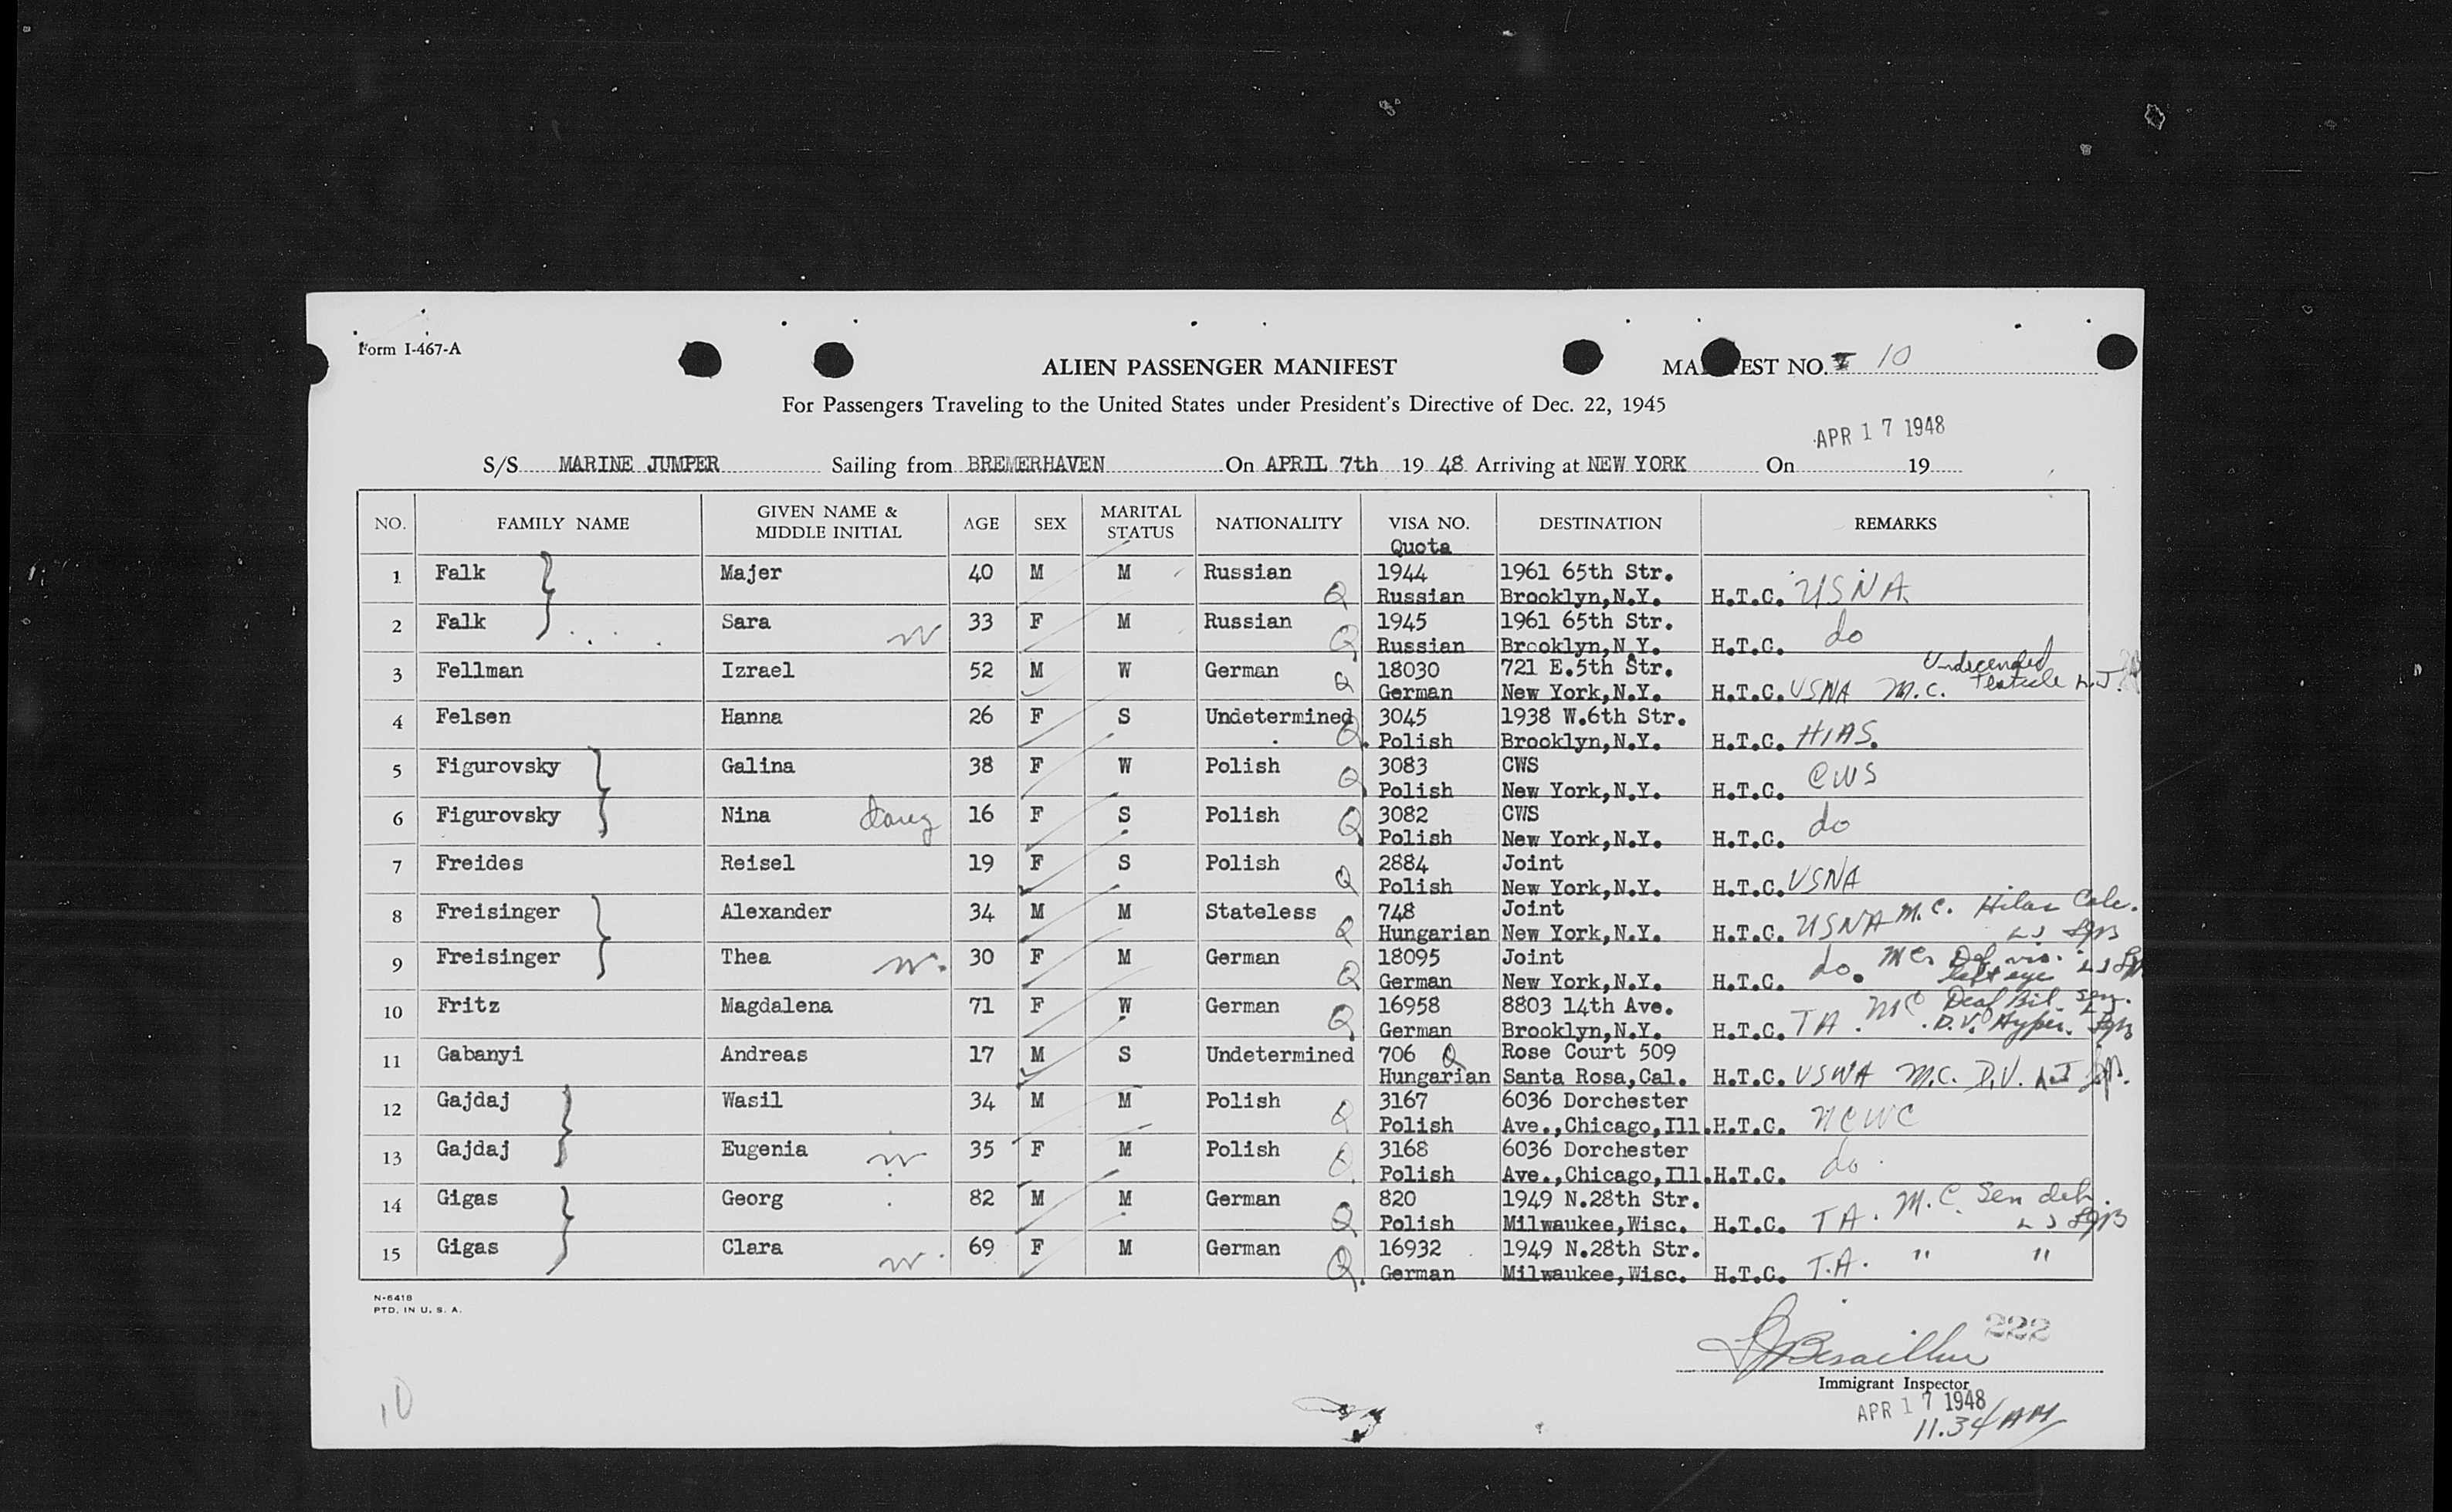 Form I-467-A
ALIEN PASSENGER MANIFEST
MA EST NO. 10
For Passengers Traveling to the United States under President's Directive of Dec. 22, 1945
APR 17 1948
S/S MARINE JUMPER Sailing from BREMERHAVEN On APRIL 7th 19 48 Arriving at NEW YORK On 19
NO. FAMILY NAME GIVEN NAME & MIDDLE INITIAL AGE SEX MARITAL STATUS NATIONALITY VISA NO. DESTINATION REMARKS
Quota
1 Falk Majer 40 M M Russian 1944 1961 65th Str.
Q Russian Brooklyn,N.Y. H.T.C. USNA.
2 Falk Sara W 33 F M Russian 1945 1961 65th Str.
Q Russian Brooklyn,N.Y. H.T.C. do
3 Fellman Izrael 52 M W German 18030 721 E.5th Str. Undecended
Q German New York,N.Y. H.T.C. USNA M.C. Testicle
4 Felsen Hanna 26 F S Undetermined 3045 1938 W.6th Str.
Q. Polish Brooklyn,N.Y. H.T.C. HIAS.
5 Figurovsky Galina 38 F W Polish 3083 CWS
Q Polish New York,N.Y. H.T.C. CWS
6 Figurovsky Nina daug 16 F S Polish 3082 CWS
Q Polish New York,N.Y. H.T.C. do
7 Freides Reisel 19 F S Polish 2884 Joint
Q Polish New York,N.Y. H.T.C. USNA
8 Freisinger Alexander 34 M M Stateless 748 Joint
Q Hungarian New York,N.Y. H.T.C. USNA M.C. Hilar Calc.
9 Freisinger Thea W. 30 F M German 18095 Joint
Q German New York,N.Y. H.T.C. do. MC. Def. vis. left eye
10 Fritz Magdalena 71 F W German 16958 8803 14th Ave.
Q German Brooklyn,N.Y. H.T.C. TA. MC Deaf Bil. Sen. D.V. Hyper.
11 Gabanyi Andreas 17 M S Undetermined 706 Q Rose Court 509
Hungarian Santa Rosa,Cal. H.T.C. USNA M.C. D.V.
12 Gajdaj Wasil 34 M M Polish 3167 6036 Dorchester
Q Polish Ave.,Chicago,Ill. H.T.C. NCWC
13 Gajdaj Eugenia W 35 F M Polish 3168 6036 Dorchester
Q. Polish Ave.,Chicago,Ill. H.T.C. do.
14 Gigas Georg 82 M M German 820 1949 N.28th Str.
Q Polish Milwaukee,Wisc. H.T.C. TA. M.C. Sen deb.
15 Gigas Clara W. 69 F M German 16932 1949 N.28th Str.
Q. German Milwaukee,Wisc. H.T.C. T.A. " "
N-6418
PTD. IN U. S. A.
222
Immigrant Inspector
APR 17 1948
11.34 AM
10